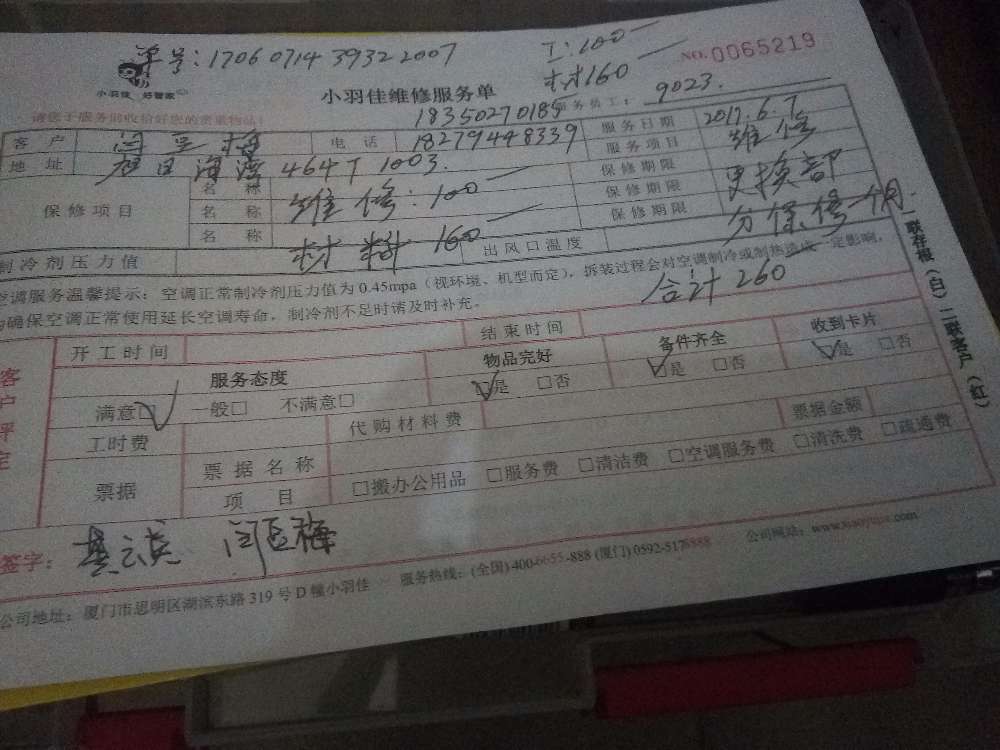 单号:17060714 3932 2007
工:100
NO.0065219
材160
小羽佳 好管家
小羽佳维修服务单
18350270185
服务员工: 9023.
请您于服务前收拾好您的贵重物品!
客 户 闫 梅 电 话 18279448339 服务日期 2017.6.7
地 址 旭日海湾 464 1003. 服务项目 维修
保修项目 名 称 维修:100 保修期限 更换部
名 称 保修期限 分保修一个月
名 称 材料 160 保修期限
制冷剂压力值 出风口温度
空调服务温馨提示:空调正常制冷剂压力值为 0.45mpa(视环境、机型而定),拆装过程会对空调制冷或制热造成一定影响,
为确保空调正常使用延长空调寿命,制冷剂不足时请及时补充。
合计 260
客户评定
开工时间 结束时间
服务态度 物品完好 备件齐全 收到卡片
满意□ 一般□ 不满意□ □是 □否 □是 □否 □是 □否
工时费 代购材料费 票据金额
票据 票据名称
项 目 □搬办公用品 □服务费 □清洁费 □空调服务费 □清洗费 □疏通费
一联存根(白)二联客户(红)
签字: 闫 梅
公司地址:厦门市思明区湖滨东路 319 号 D 幢小羽佳 服务热线:(全国) 400-6655-888 (厦门) 0592-5178888 公司网站:www.xiaoyujia.com